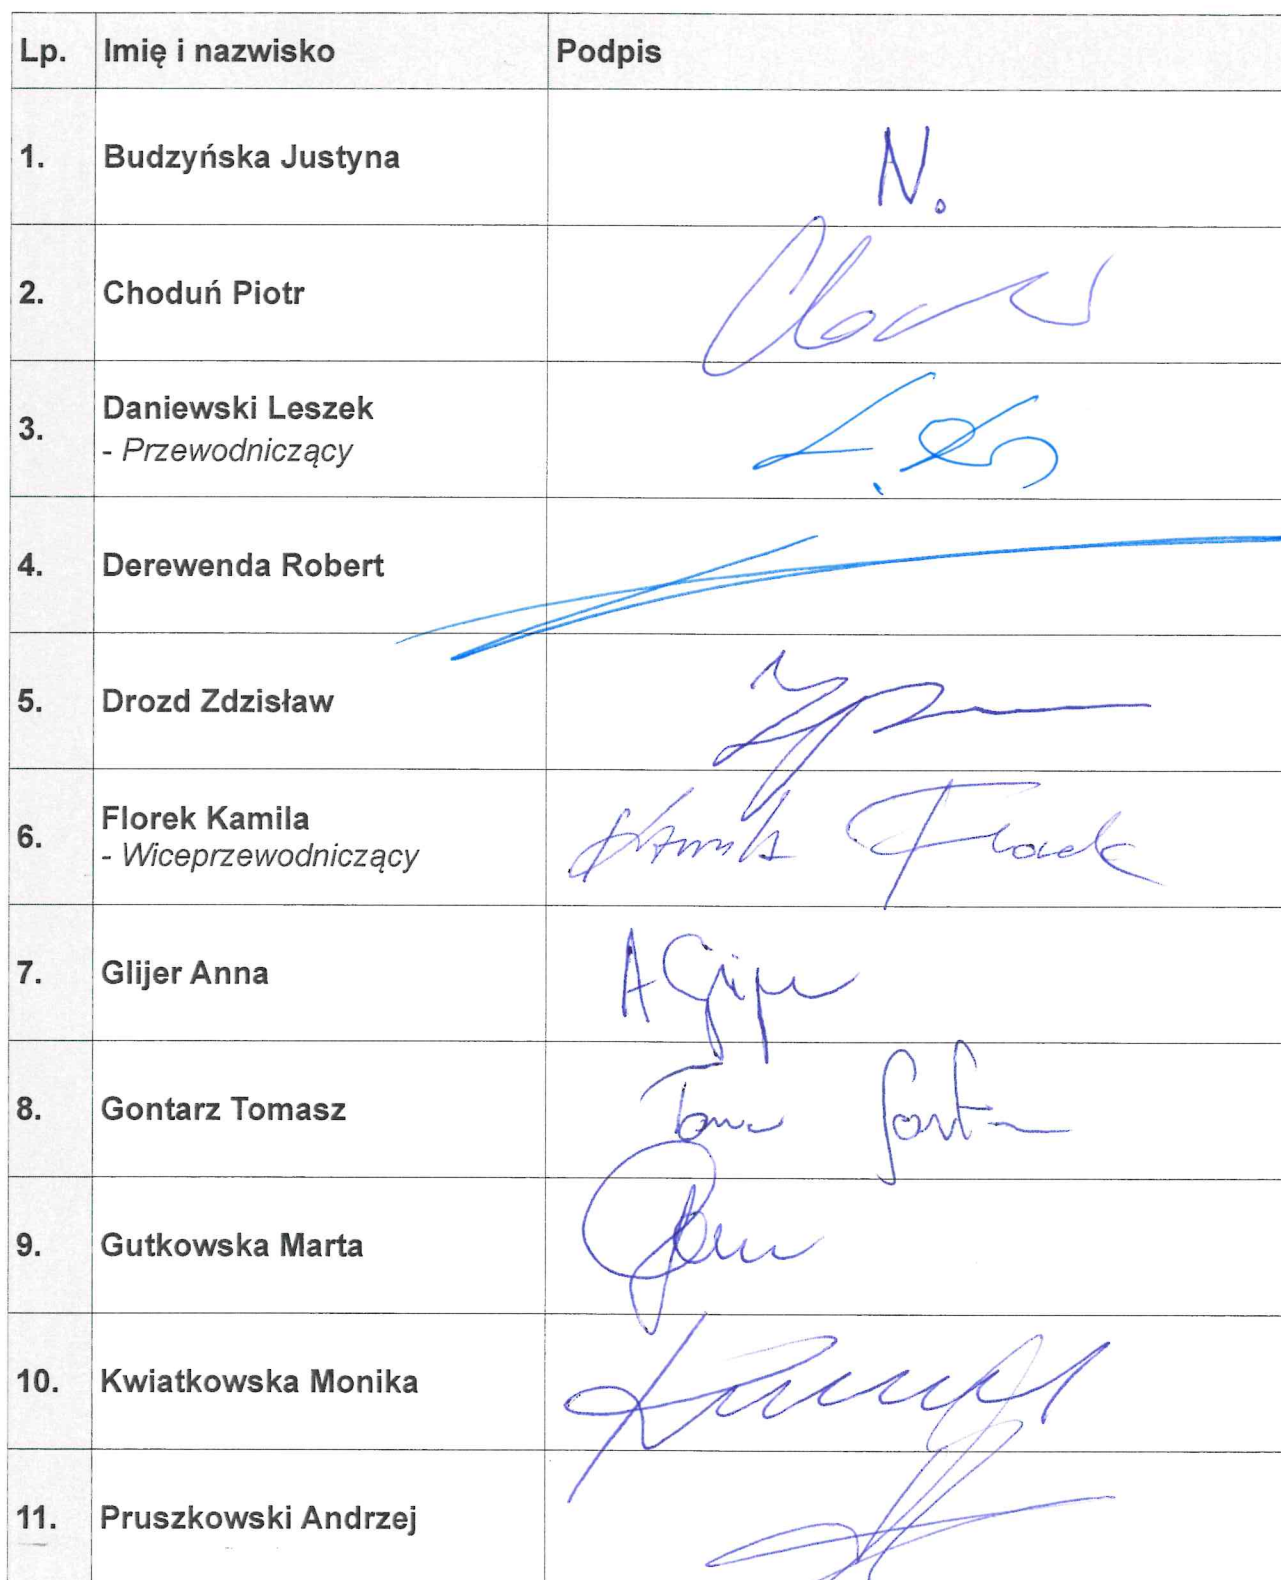 Lp. Imię i nazwisko Podpis
1. Budzyńska Justyna N.
2. Choduń Piotr
3. Daniewski Leszek
- Przewodniczący
4. Derewenda Robert
5. Drozd Zdzisław
6. Florek Kamila
- Wiceprzewodniczący
7. Glijer Anna
8. Gontarz Tomasz
9. Gutkowska Marta
10. Kwiatkowska Monika
11. Pruszkowski Andrzej